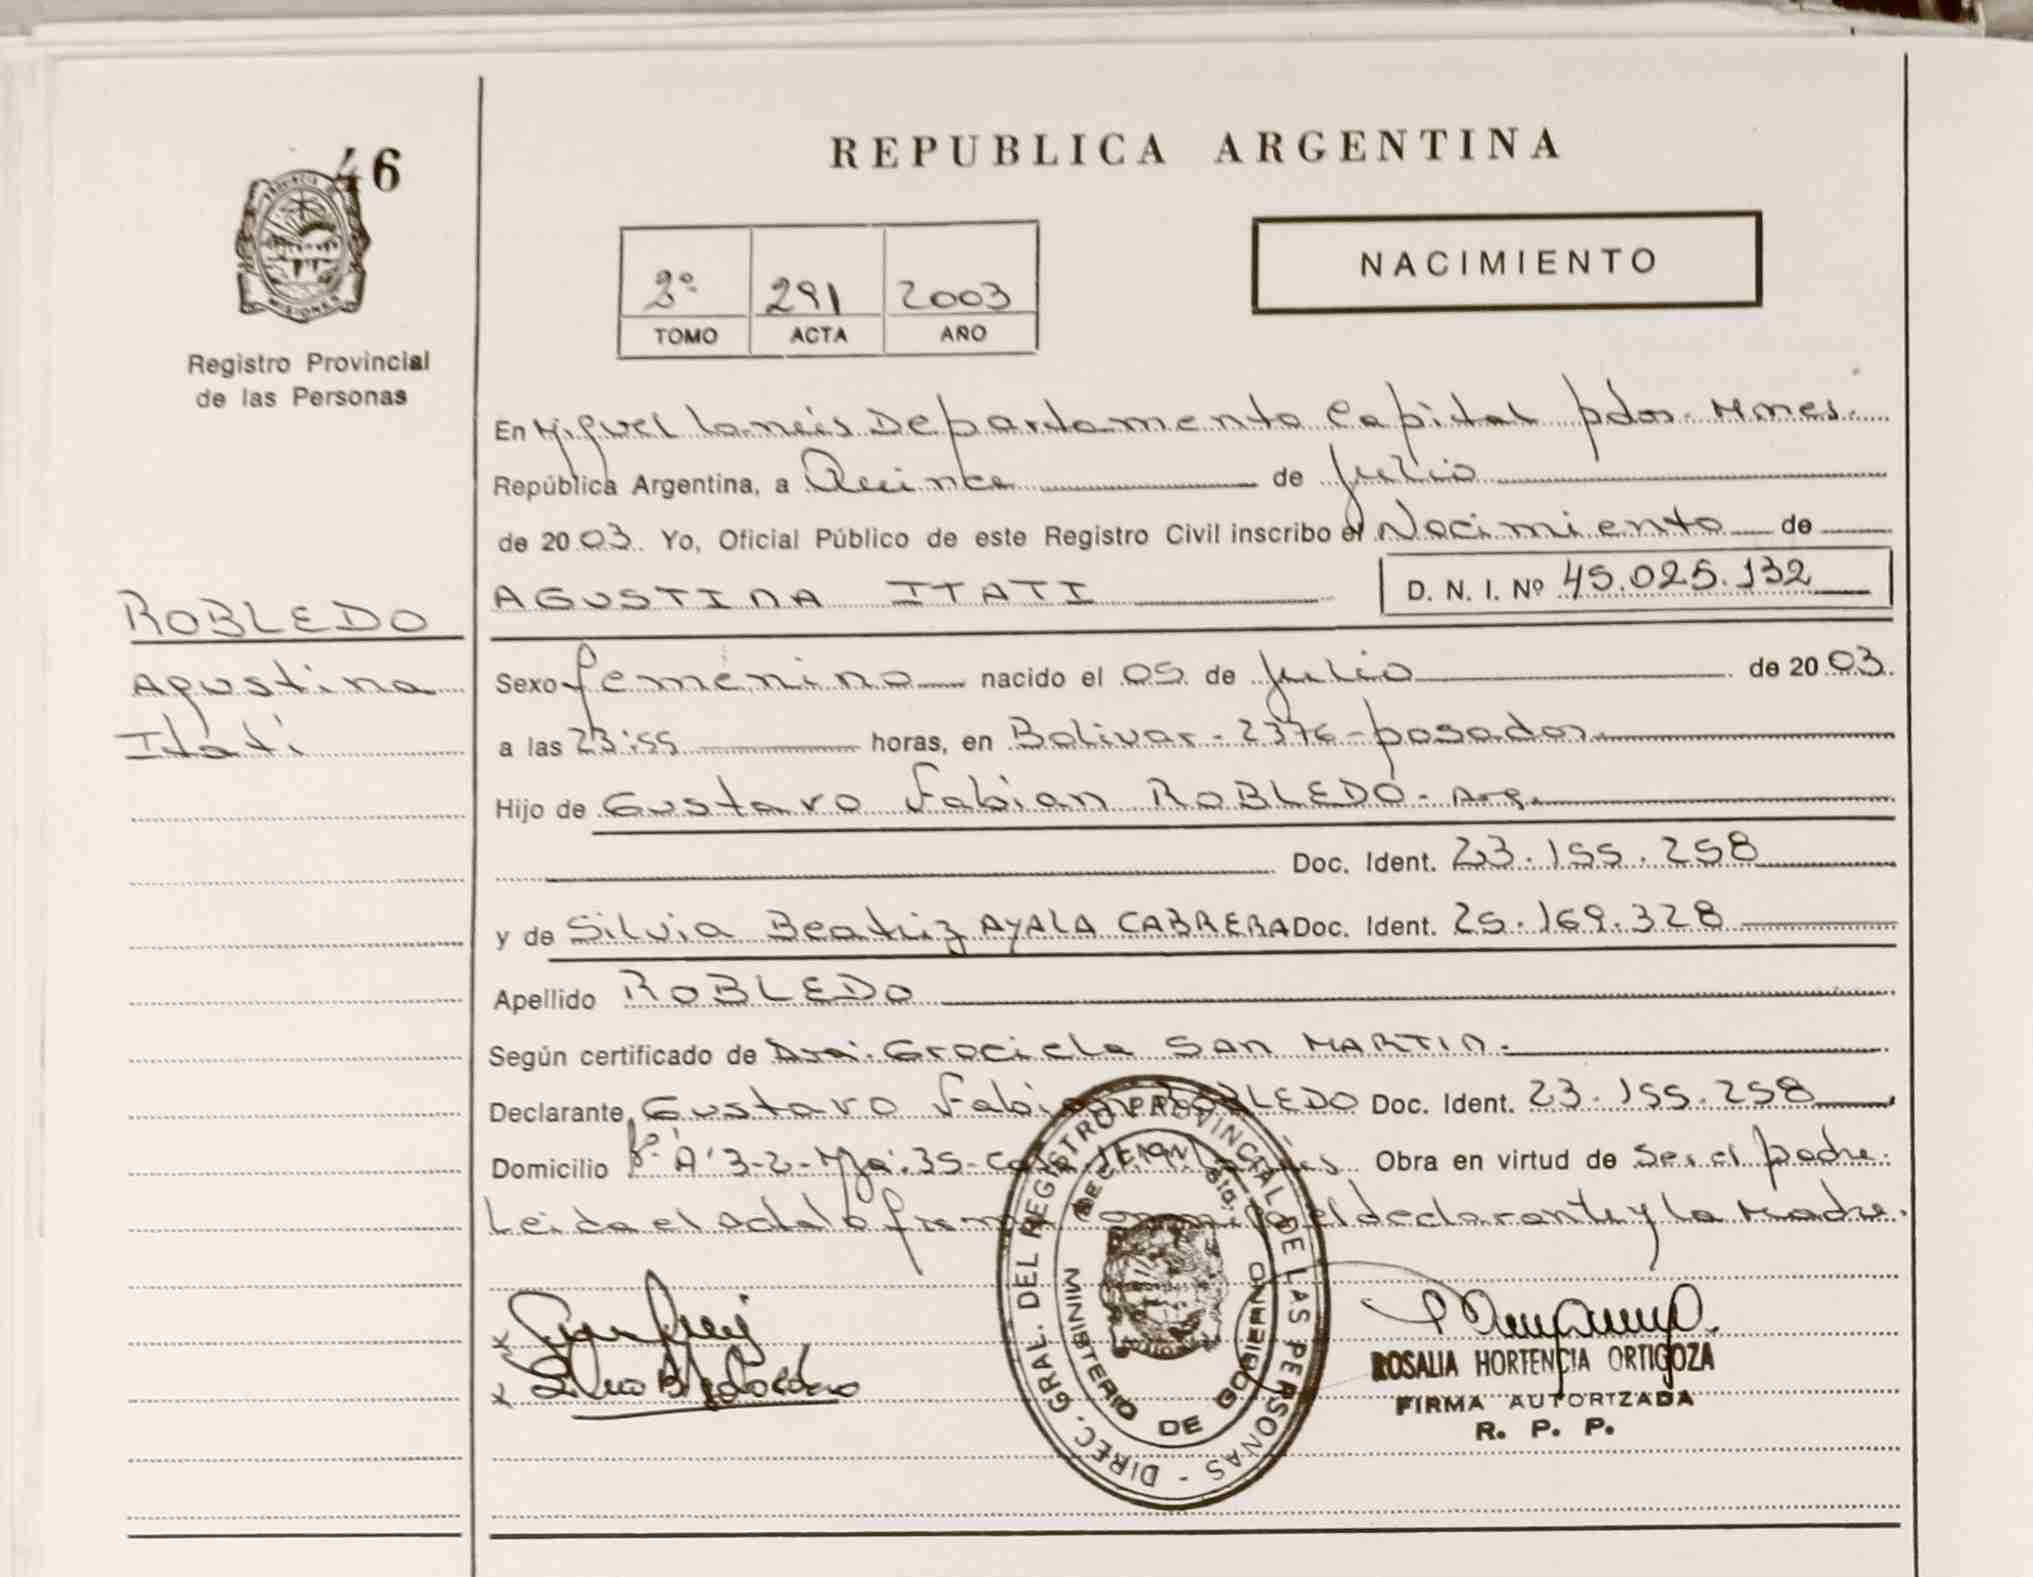 46
PROVINCIA DE
MISIONES
Registro Provincial
de las Personas
REPUBLICA ARGENTINA
NACIMIENTO
2º 291 2003
TOMO ACTA AÑO
En Miguel Lanús Departamento Capital pdas. Mnes.
República Argentina, a Quince de Julio
de 2003. Yo, Oficial Público de este Registro Civil inscribo el Nacimiento de
AGUSTINA ITATI D. N. I. Nº 45.025.132
ROBLEDO
Agustina
Itatí
Sexo femenino nacido el 05 de Julio de 2003.
a las 23:55 horas, en Bolivar - 2376 - posadas
Hijo de Gustavo Fabian ROBLEDO - Arg.
Doc. Ident. 23.155.258
y de Silvia Beatriz AYALA CABRERA Doc. Ident. 25.169.328
Apellido ROBLEDO
Según certificado de Dra. Graciela SAN MARTIN.
Declarante Gustavo Fabian ROBLEDO Doc. Ident. 23.155.258
Domicilio Bº "A" 3-2- Mza. 35- Casa Obra en virtud de Ser el padre.
Leída el acta la firman el declarante y la Madre.
DIREC. GRAL. DEL REGISTRO PROVINCIAL DE LAS PERSONAS -
MINISTERIO DE GOBIERNO
ROSALIA HORTENCIA ORTIGOZA
FIRMA AUTORIZADA
R. P. P.